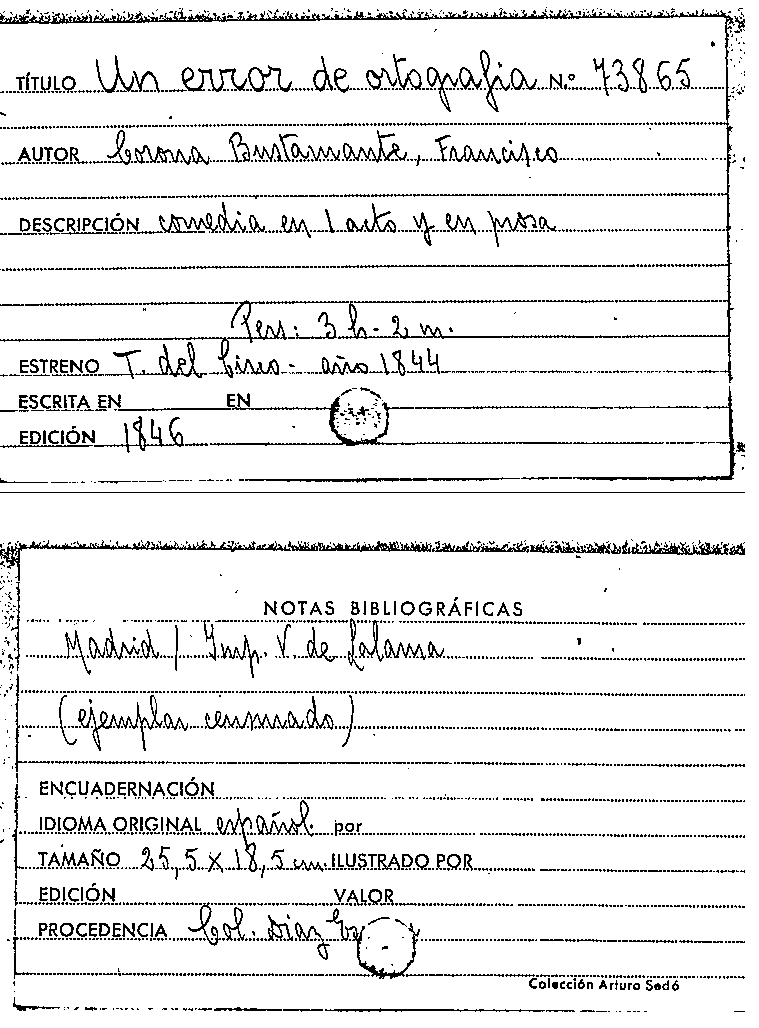 TÍTULO Un error de ortografia N.º 73865
AUTOR Corona Bustamante, Francisco
DESCRIPCIÓN comedia en 1 acto y en prosa
Pers: 3 h - 2 m.
ESTRENO T. del Circo - año 1844
ESCRITA EN EN
EDICIÓN 1846
NOTAS BIBLIOGRÁFICAS
Madrid / Imp. V. de Lalama
(ejemplar censurado)
ENCUADERNACIÓN
IDIOMA ORIGINAL español por
TAMAÑO 25,5 x 18,5 cm. ILUSTRADO POR
EDICIÓN VALOR
PROCEDENCIA Col. Diaz
Colección Arturo Sedó